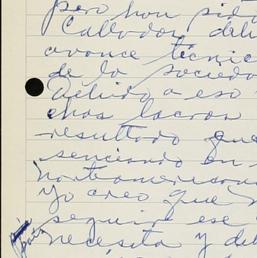 pero han sido
Callados deb
avance técnic
de la socieda
debido a eso
chos lacras
resultado que
senciando en
norteamerican
Yo creo que
seguir ese
necesita y deb
para